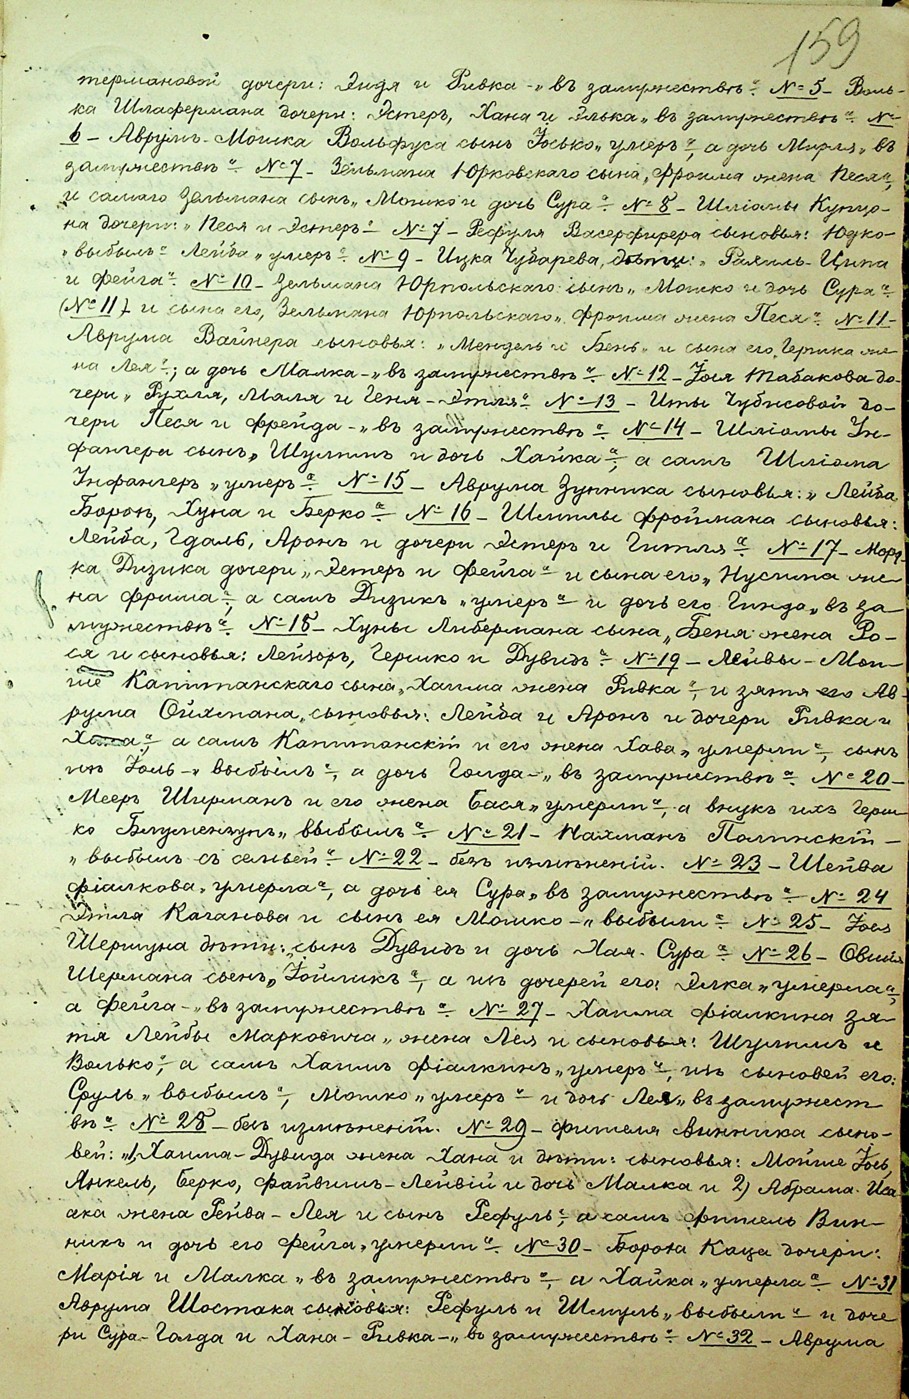 159
термановой дочери: Эндя и Ривка -„ въ замужествѣ“. № 5 - Воль-
ка Шлафермана дочери: Эстеръ, Хана и Элька „въ замужествѣ“. №
6 - Аврумъ-Мошка Вольфуса сынъ Іосько „умеръ“, а дочь Мирля „въ
замужествѣ“. № 7 - Зельмана Юрковскаго сына, Фроима жена Песя“,
и самаго Зельмана сынъ „Мошко и дочь Сура“. № 8 - Шліомы Купцо-
на дочери: „Песя и Эстеръ“. № 7 - Рефуля Васерфирера сыновья: Юдко-
„выбылъ“ Лейба „умеръ“. № 9 - Ицка Чубарева, дѣти: „Рахиль-Ципа
и Фейга“. № 10 - Зельмана Юрпольскаго сынъ „Мошко и дочь Сура“.
(№ 11) и сына его, Зельмана Юрпольскаго „Фроима жена Песя“. № 11 -
Аврума Вайнера сыновья: „Мендель и Бень“ и сына его, Гершка же-
на Лея“; а дочь Малка -„въ замужествѣ“. № 12 - Іося Табакова до-
чери „Рухля, Маля и Геня-Этля“. № 13 - Иты Чубисовой до-
чери Песя и Фрейда -„въ замужествѣ“. № 14 - Шліомы Ин-
фангера сынъ „Шулимъ и дочь Хайка“, а самъ Шліома
Инфангеръ „умеръ“. № 15 - Аврума Зунника сыновья: „Лейба
Борохъ, Хуна и Берко“. № 16 - Шмилы Фроймана сыновья:
Лейба, Гдаль, Аронъ и дочери Эстеръ и Гитля“. № 17 - Морд-
ка Дизика дочери „Эстеръ и Фейга“ и сына его „Нусима же-
на Фрима“, а самъ Дизикъ „умеръ“ и дочь его Гинда „въ за-
мужествѣ“. № 18 - Хуны Либермана сына „Беня жена Ро-
ся и сыновья: Лейзоръ, Гершко и Дувидъ“. № 19 - Лейвы-Мой-
ше Капитанскаго сына „Хаима жена Ривка“ и зятя его Ав-
рума Ойхмана „сыновья: Лейба и Аронъ и дочери Ривка и
Хана“, а самъ Капитанскій и его жена Хава „умерли“, сынъ
ихъ Іось -„ выбылъ“, а дочь Голда -„въ замужествѣ“. № 20 -
Мееръ Ширманъ и его жена Бася „умерли“, а внукъ ихъ Герш-
ко Блуменкупъ „выбылъ“. № 21 - Нахманъ Полинскій -
„выбылъ съ семьей“. № 22 - безъ измѣненій. № 23 - Шейва
Фіалкова „умерла“, а дочь ея Сура „въ замужествѣ“. № 24
Этля Каганова и сынъ ея Мошко -„выбыли“. № 25 - Іося
Шершуна дѣти: „сынъ Дувидъ и дочь Хая-Сура“. № 26 - Овшія
Шермана сынъ „Зойликъ“, а изъ дочерей его: Элка „умерла“,
а Фейга -„въ замужествѣ“. № 27 - Хаима Фіалкина зя-
тя Лейбы Марковича „жена Лея и сыновья: Шулимъ и
Волько“, а самъ Хаимъ Фіалкинъ „умеръ“, изъ сыновей его:
Сруль „выбылъ“, Мошко „умеръ“ и дочь Лея „въ замужест-
вѣ“. № 28 - безъ измѣненій. № 29 - Фишеля Винника сыно-
вей: „1, Хаима-Дувида жена Хана и дѣти: сыновья: Мойше Іось,
Янкель, Берко, Файвишъ-Лейвій и дочь Малка и 2) Абрама-Иса-
ака жена Рейва-Лея и сынъ Рефуль“, а самъ Фишель Вин-
никъ и дочь его Фейга „умерли“. № 30 - Бороха Каца дочери:
Марія и Малка „въ замужествѣ“, а Хайка „умерла“. № 31
Аврума Шостака сыновья: Рефуль и Шмуль „выбыли“ и доче-
ри Сура-Голда и Хана-Ривка -„въ замужествѣ“. № 32 - Аврума